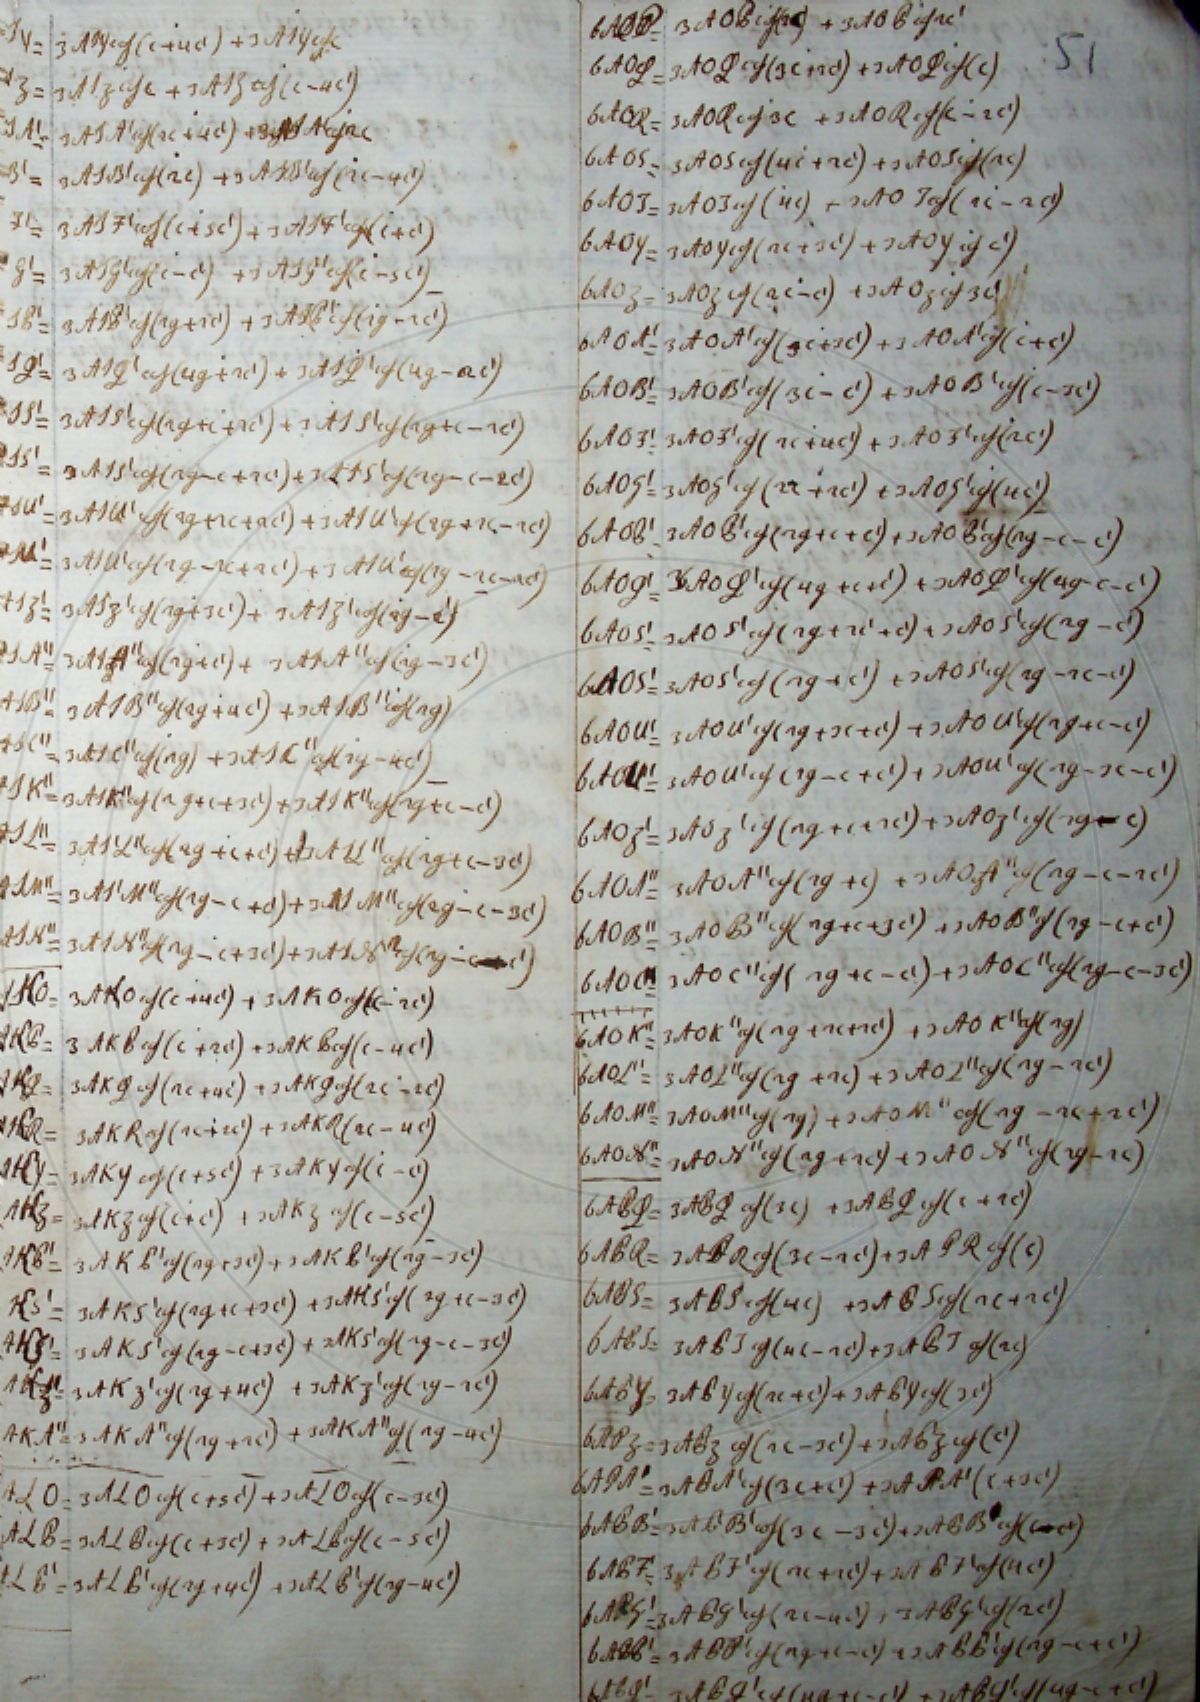 51
Iy = 3AIy cof(c+4c') + 3AIy cof c
Iz = 3AIz cof c + 3AIz cof(c-4c')
IA' = 3AIA' cof(2c+4c') + 3AIA' cof 2c
B' = 3AIB' cof(2c) + 3AIB' cof(2c-4c')
F' = 3AIF' cof(c+5c') + 3AIF' cof(c+c')
G' = 3AIG' cof(c-c') + 3AIG' cof(c-5c')
IP' = 3AIP' cof(2g+2c') + 3AIP' cof(2g-2c')
IQ' = 3AIQ' cof(4g+2c') + 3AIQ' cof(4g-2c')
IS' = 3AIS' cof(2g+c+2c') + 3AIS' cof(2g+c-2c')
IS' = 3AIS' cof(2g-c+2c') + 3AIS' cof(2g-c-2c')
AIU' = 3AIU' cof(2g+2c+2c') + 3AIU' cof(2g+2c-2c')
AIU' = 3AIU' cof(2g-2c+2c') + 3AIU' cof(2g-2c-2c')
AIz' = 3AIz' cof(2g+3c') + 3AIz' cof(2g-c')
AIA'' = 3AIA'' cof(2g+c') + 3AIA'' cof(2g-3c')
AIB'' = 3AIB'' cof(2g+4c') + 3AIB'' cof(2g)
AIC'' = 3AIC'' cof(2g) + 3AIC'' cof(2g-4c')
AIK'' = 3AIK'' cof(2g+c+3c') + 3AIK'' cof(2g+c-c')
AIL'' = 3AIL'' cof(2g+c+c') + 3AIL'' cof(2g+c-3c')
AIM'' = 3AIM'' cof(2g-c+c') + 3AIM'' cof(2g-c-3c')
AIN'' = 3AIN'' cof(2g-c+3c') + 3AIN'' cof(2g-c-c')
AKO = 3AKO cof(c+4c') + 3AKO cof(c-2c')
AKP = 3AKP cof(c+2c') + 3AKP cof(c-4c')
AKQ = 3AKQ cof(2c+4c') + 3AKQ cof(2c-2c')
AKR = 3AKR cof(2c+2c') + 3AKR(2c-4c')
AKy = 3AKy cof(c+5c') + 3AKy cof(c-c')
AKz = 3AKz cof(c+c') + 3AKz cof(c-5c')
AKP' = 3AKP' cof(2g+3c') + 3AKP' cof(2g-3c')
KS' = 3AKS' cof(2g+c+3c') + 3AKS' cof(2g+c-3c')
AKS' = 3AKS' cof(2g-c+3c') + 3AKS' cof(2g-c-3c')
AKz' = 3AKz' cof(2g+4c') + 3AKz' cof(2g-2c')
AKA'' = 3AKA'' cof(2g+2c') + 3AKA'' cof(2g-4c')
ALO = 3ALO cof(c+5c') + 3ALO cof(c-3c')
ALP = 3ALP cof(c+3c') + 3ALP cof(c-5c')
ALP' = 3ALP' cof(2g+4c') + 3ALP' cof(2g-4c')
6AOP = 3AOP cof(2c) + 3AOP cof 2c'
6AOQ = 3AOQ cof(3c+2c') + 3AOQ cof(c)
6AOR = 3AOR cof 3c + 3AOR cof(c-2c')
6AOS = 3AOS cof(4c+2c') + 3AOS cof(2c)
6AOT = 3AOT cof(4c) + 3AOT cof(2c-2c')
6AOy = 3AOy cof(2c+3c') + 3AOy cof c'
6AOz = 3AOz cof(2c-c') + 3AOz cof 3c'
6AOA' = 3AOA' cof(3c+3c') + 3AOA' cof(c+c')
6AOB' = 3AOB' cof(3c-c') + 3AOB' cof(c-3c')
6AOF' = 3AOF' cof(2c+4c') + 3AOF' cof(2c')
6AOG' = 3AOG' cof(2c+2c') + 3AOG' cof(4c')
6AOP' = 3AOP' cof(2g+c+c') + 3AOP' cof(2g-c-c')
6AOQ' = 3AOQ' cof(4g+c+c') + 3AOQ' cof(4g-c-c')
6AOS' = 3AOS' cof(2g+2c+c') + 3AOS' cof(2g-c')
6AOS' = 3AOS' cof(2g+c') + 3AOS' cof(2g-2c-c')
6AOU' = 3AOU' cof(2g+3c+c') + 3AOU' cof(2g+c-c')
6AOU' = 3AOU' cof(2g-c+c') + 3AOU' cof(2g-3c-c')
6AOz' = 3AOz' cof(2g+c+2c') + 3AOz' cof(2g-c)
6AOA'' = 3AOA'' cof(2g+c) + 3AOA'' cof(2g-c-2c')
6AOB'' = 3AOB'' cof(2g+c+3c') + 3AOB'' cof(2g-c+c')
6AOC'' = 3AOC'' cof(2g+c-c') + 3AOC'' cof(2g-c-3c')
6AOK'' = 3AOK'' cof(2g+2c+2c') + 3AOK'' cof(2g)
6AOL'' = 3AOL'' cof(2g+2c) + 3AOL'' cof(2g-2c')
6AOM'' = 3AOM'' cof(2g) + 3AOM'' cof(2g-2c+2c')
6AON'' = 3AON'' cof(2g+2c') + 3AON'' cof(2g-2c)
6APQ = 3APQ cof(3c) + 3APQ cof(c+2c')
6APR = 3APR cof(3c-2c') + 3APR cof(c)
6APS = 3APS cof(4c) + 3APS cof(2c+2c')
6APT = 3APT cof(4c-2c') + 3APT cof(2c)
6APy = 3APy cof(2c+c') + 3APy cof(3c')
6APz = 3APz cof(2c-3c') + 3APz cof(c')
6APA' = 3APA' cof(3c+c') + 3APA'(c+3c')
6APB' = 3APB' cof(3c-3c') + 3APB' cof(c-c')
6APF' = 3APF' cof(2c+2c') + 3APF' cof(4c')
6APG' = 3APG' cof(2c-4c') + 3APG' cof(2c')
6APP' = 3APP' cof(2g+c-c') + 3APP' cof(2g-c+c')
6APQ' = 3APQ' cof(4g+c-c') + 3APQ' cof(4g-c+c')